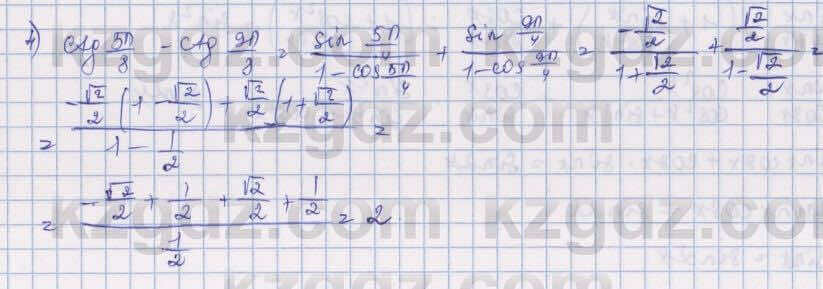 4) ctg 5π/8 - ctg 9π/8 = sin 5π/4 / (1 - cos 5π/4) + sin 9π/4 / (1 - cos 9π/4) = (-√2/2) / (1 + √2/2) + (√2/2) / (1 - √2/2) =
= (-√2/2 (1 - √2/2) + √2/2 (1 + √2/2)) / (1 - 1/2) =
= (-√2/2 + 1/2 + √2/2 + 1/2) / (1/2) = 2.
kzgdz.com kzgdz.com
kzgdz.com kzgdz.com